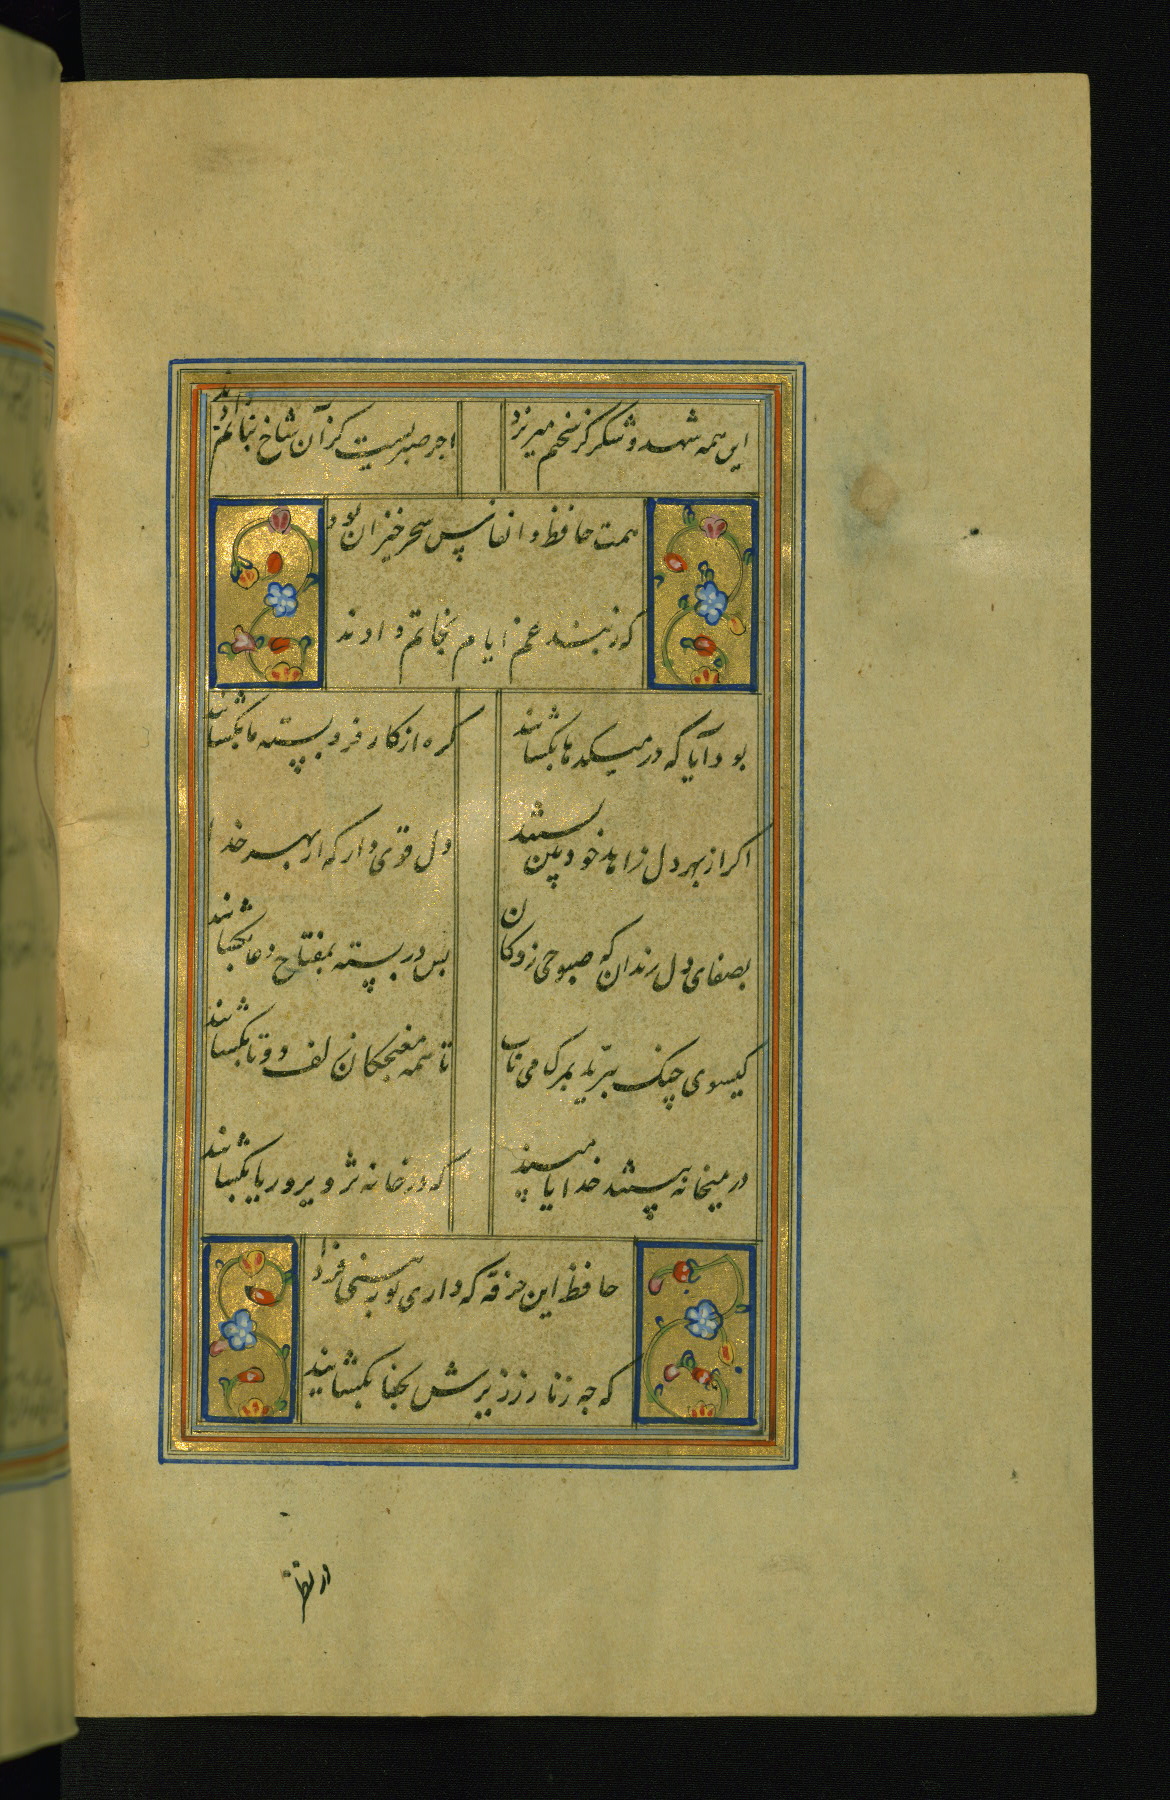 این همه شهد و شکر کز سخنم میریزد
اجر صبریست کز آن شاخ نباتم دادند
همت حافظ و انفاس سحر خیزان بود
که ز بند غم ایام نجاتم دادند
بود آیا که در میکدها بکشایند
کره از کار فرو بسته ما بکشایند
اکر از بهر دل زاهد خود بین بستند
دل قوی دار که از بهر خدا بکشایند
بصفای دل رندان که صبوحی زدکان
بس در بسته بمفتاح دعا بکشایند
کیسوی چنک ببرید بمرک می ناب
تا همه مغبچکان زلف دوتا بکشایند
در میخانه ببستند خدایا مپسند
که در خانه تزویر و ریا بکشایند
حافظ این خرقه که داری تو ببینی فردا
که چه زنار ز زیرش بجفا بکشایند